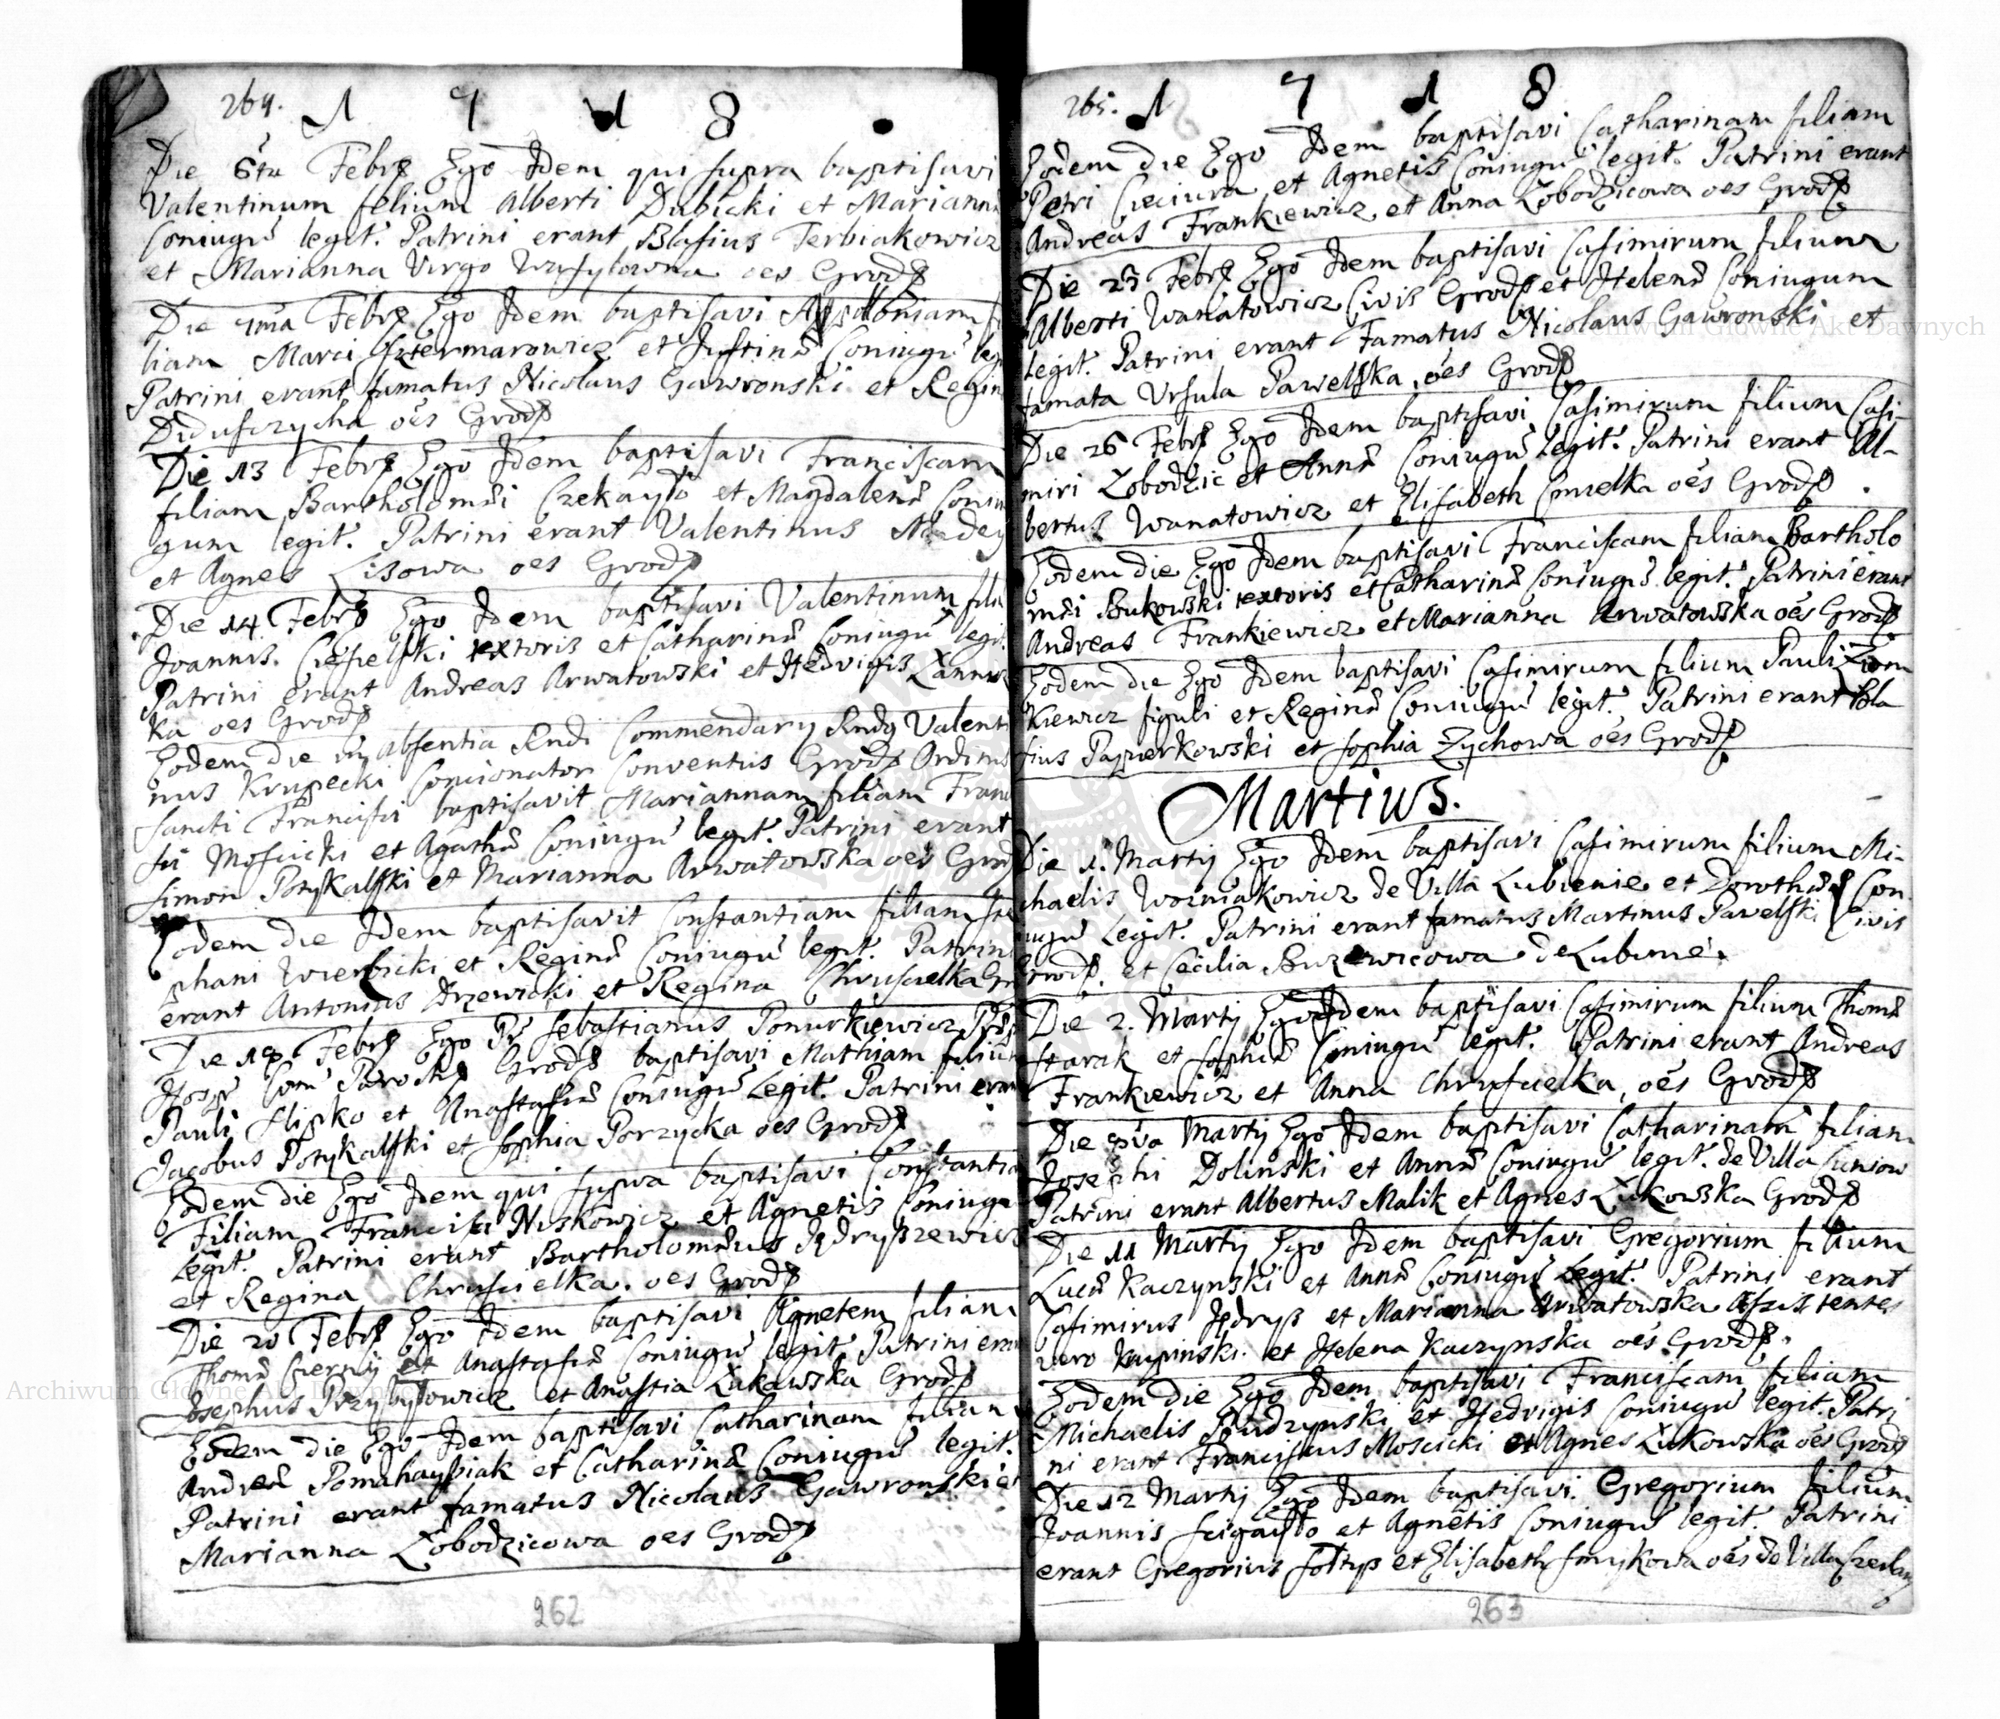 264. 1 7 1 8.
Die 6ta Febr Ego Idem qui supra baptisavi
Valentinum filium Alberti Dubicki et Mariannæ
Coniugū legit. Patrini erant Blasius Terbiakowicz
et Marianna Virgo Wasylowna oes Grod
Die 7ma Febr Ego Idem baptisavi Appolloniam fi
liam Marci et Justinæ Coniugū leg
Patrini erant famatus Nicolaus Gawronski et Regin
oēs Grod
Die 13 Febr Ego Idem baptisavi Franciscam
filiam Bartholomæi Czekayło et Magdalenæ Coniu
gum legit. Patrini erant Valentinus
et Agnes Lisowa oes Grod
Die 14 Febr Ego Idem baptisavi Valentinum filiu
Joannis Ciepelski textoris et Catharinæ Coniugū legit.
Patrini erant Andreas Arwatowski et Hedvigis
ka oes Grod
Eodem die in absentia Rndi Commendary Rndg Valenti
nus Krupecki Concionator Conventus Grod Ordinis
Sancti Francisci baptisavit Mariannam filiam Franci
sci Moscicki et Agathæ Coniugū legit. Patrini erant
Simon Potykalski et Marianna Arwatowska oes Grod
Eodem die Idem baptisavit Constantiam filiam Ste
phani Wierbicki et Reginæ Coniugū legit. Patrini
erant Antonius Arzewicki et Regina Chruscielka Gr
Die Febr Ego Pr Sebastianus Ponurkiewicz
Hosp Com Paroch Grod baptisavi Mathiam filium
Pauli Slipko et Anastasiæ Coniugū Legit. Patrini erant
Jacobus Potykalski et Sophia Porzycka oes Grod
Eodem die Ego Idem qui supra baptisavi Constantia
Filiam Francisci Niskowicz et Agnetis Coniugū
Legit. Patrini erant Bartholomæus Jędryszewicz
et Regina Chruscielka. oes Grod
Die 20 Febr Ego Idem baptisavi Agnetem filiam
Thomæ Czerny et Anastasiæ Coniugū legit. Patrini eran
Josephus Przybyłowicz et Anastia Łukawska Grod
Eodem die Ego Idem baptisavi Catharinam filiam
Andreæ Pomahaysiak et Catharinæ Coniugū legit.
Patrini erant famatus Nicolaus Gawronski et
Marianna Łobodzicowa oes Grod
262
265. 1 7 1 8
Eodem die Ego Idem baptisavi Catharinam filiam
Petri Cieciura et Agnetis Coniugū legit. Patrini erant
Andreas Frankiewicz et Anna Łobodzicowa oes Grod
Die 23 Febr Ego Idem baptisavi Casimirum filium
Alberti Wanatowicz Civis Grod et Helenæ Coniugum
legit. Patrini erant Famatus Nicolaus Gawronski et
famata Ursula Pawelska, oēs Grod
Die 26 Febr Ego Idem baptisavi Casimirum filium Casi-
miri Łobodzic et Annæ Coniugū Legit. Patrini erant Al-
bertus Wanatowicz et Elisabeth Cmielka oēs Grod.
Eodem die Ego Idem baptisavi Franciscam filiam Bartholo
mæi Bukowski textoris et Catharinæ Coniugū legit. Patrini erant
Andreas Frankiewicz et Marianna Arwatowska oēs Grod
Eodem die Ego Idem baptisavi Casimirum filium Pauli Ziem
kiewicz figuli et Reginæ Coniugū legit. Patrini erant Bla
sius Papierkowski et Sophia Zychowa oēs Grod
Martius.
Die 1. Martij Ego Idem baptisavi Casimirum filium Mi-
chaelis Wozniakowicz de Villa Lubienie et Dorotheæ Con-
iugū Legit. Patrini erant famatus Martinus Pavelski Civis
Grod. et Cecilia de Lubinie.
Die 2. Martij Ego Idem baptisavi Casimirum filium Thomæ
Starak et Sophiæ Coniugū legit. Patrini erant Andreas
Frankiewicz et Anna Chruscielka, oēs Grod
Die Martij Ego Idem baptisavi Catharinam filiam
Josephi Dolinski et Annæ Coniugū legit. de Villa
Patrini erant Albertus Malik et Agnes Łukowska Grod
Die 11 Martij Ego Idem baptisavi Gregorium filium
Lucæ Kaczynski et Annæ Coniugū Legit. Patrini erant
Casimirus Jędrys et Marianna Arwatowska Assistentes
vero Krupinski et Helena Kaczynska oēs Grod.
Eodem die Ego Idem baptisavi Franciscam filiam
Michaelis Budzynski et Hedvigis Coniugū legit. Patri
ni erant Franciscus Moscicki et Agnes Łukowska oēs Grod
Die 12 Martij Ego Idem baptisavi Gregorium filium
Joannis Scigayło et Agnetis Coniugū legit. Patrini
erant Gregorius Sołtys et Elisabeth Smykowa oēs de Villa
263
Archiwum Główne Akt Dawnych